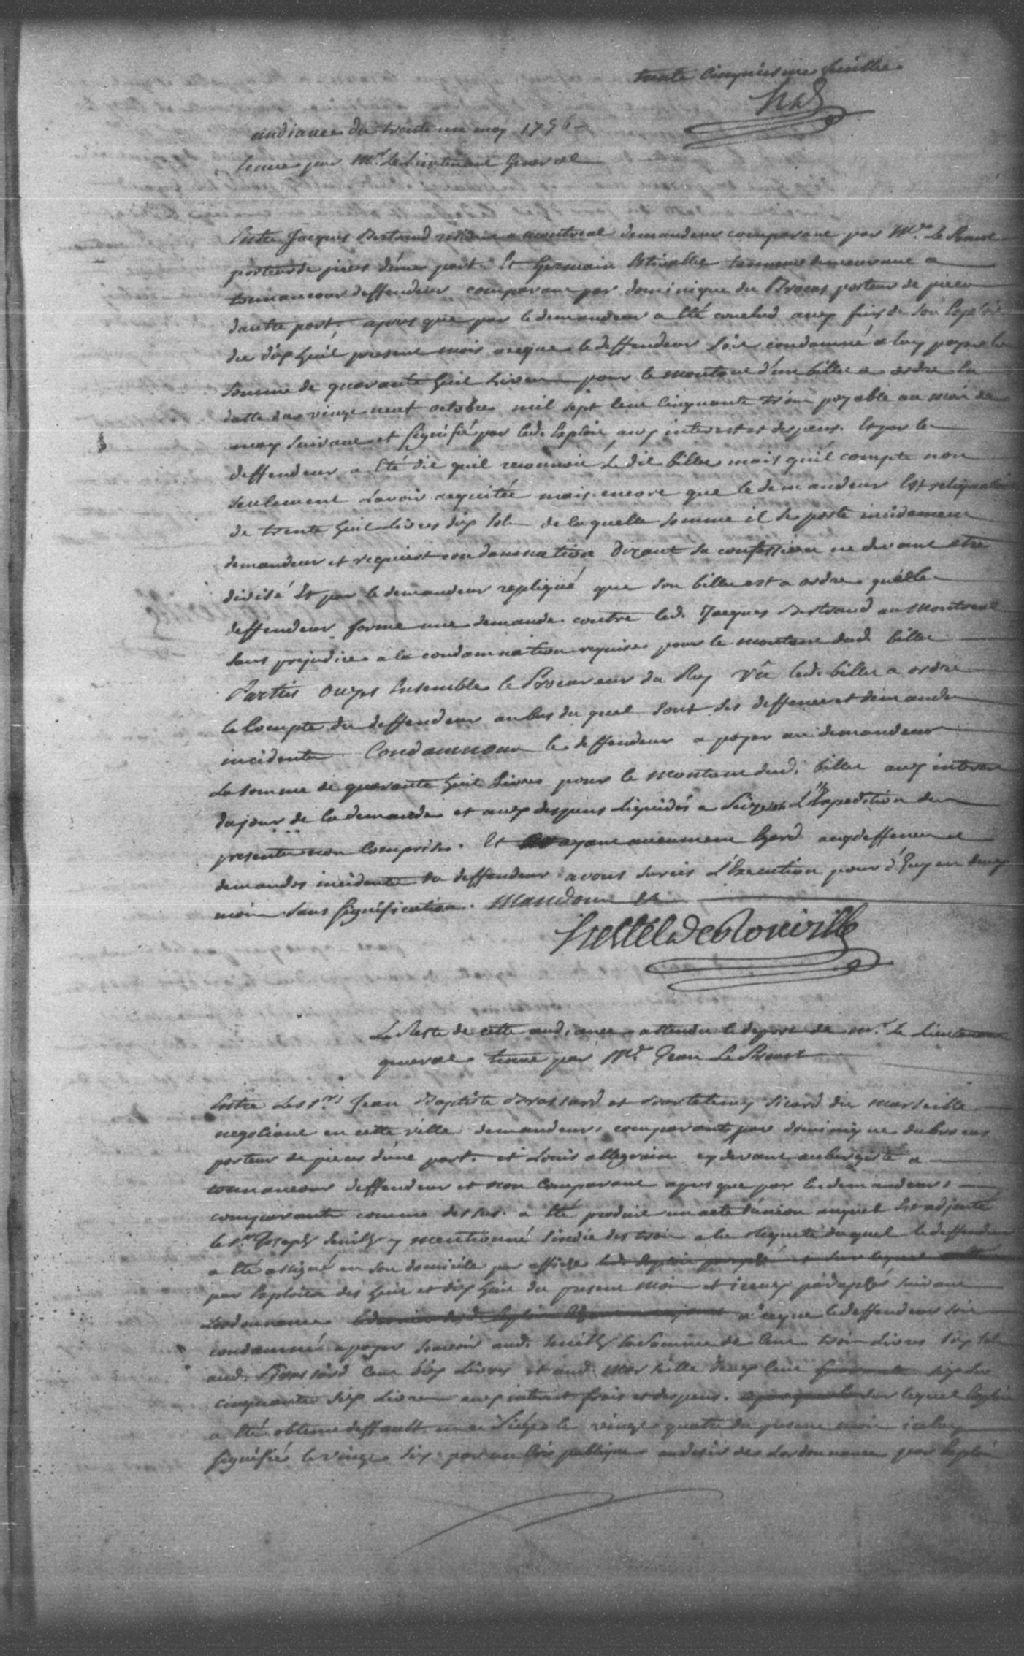 trente cinquiesme feuillet
HxdR
audiance du trente un may 1756
tenue par Mr. le Lieutenant General
Entre Jacques Bertrand a montreal demandeur comparant par Me. Le Proust
porteur de pieces d'une part. Et Germain demeurant a
tonnancour deffendeur comparant par dominique du Brocas porteur de pieces
dautre part. apres que par le demandeur a été conclud aux fins de son Exploit
du dix huit present mois aceque le deffendeur soit condamné a luy payer la
somme de quarante huit Livres pour le montant d'un billet a ordre en
datte du vingt neuf octobre mil sept cent cinquante trois payable au mois de
may suivant et signifié par led. Exploit, aux interest et depens. Et par le
deffendeur a été dit quil reconnoit le dit billet mais quil compte non
seulement l'avoir acquitée mais encore que le demandeur Est reliquataire
de trente huit Livres dix sols de laquelle somme il se porte incidament
demandeur et requiert condamnation Disant sa confession ne devant etre
divisé Et par le demandeur repliqué que son billet est a ordre quele
deffendeur forme une demande contre led. Jacques Bertrand au Montreal
sans prejudice a la condamnation requise pour le montant dud. billet
Parties ouyes Ensemble le Procureur du Roy Vû led. billet a ordre
le Compte du deffendeur au bas du quel sont ses deffences et demande
incidente Condamnons le deffendeur a payer au demandeur
La somme de quarante huit Livres pour le montant dud. billet aux interest
du jour de la demande et aux depens liquidés a L'Expedition des
presentes non comprise. Et ayant aucunement Egard aux deffences et
demandes incidente du deffendeur avons surcis L'Execution pour d'huy en deux
mois sans signification. Mandons &a
Hertel De Rouville
Le Reste de cette audiance attendu le deport de mr. le lieutenant
general tenue par Me. Jean Le Proust
Entre Les srs Jean Baptiste Brassard et Bartelemy Sicard du marseille
negotiant en cette ville demandeurs comparants par dominique dubrocas
porteur de pieces d'une part. et Louis allegrain cy devant aubergiste a
tonnancour deffendeur et non comparant apres que par les demandeurs
comparants comme dessus. a été produit un acte d'union auquel Est adjointe
le sr. Joseph y mentionné sindic des trois a la Requete duquel le deffendeur
a été assigné en son domicile par affiche
par Exploits des huit et dix huit du present mois et iceux paraphés suivant
Lordonnance aceque le deffendeur soit
condamné a payer sçavoir aud. la somme de Cent trois Livres dix sols
aud. Brassard Cent dix Livres et aud. Marseille deux Cent
cinquante dix Livres aux interest frais et depens. sur lequel Exploit
a été obtenu deffault en ce Siege le vingt quatre du present mois iceluy
signifié le vingt six par un Cris publique au desir de Lordonnance par Exploit